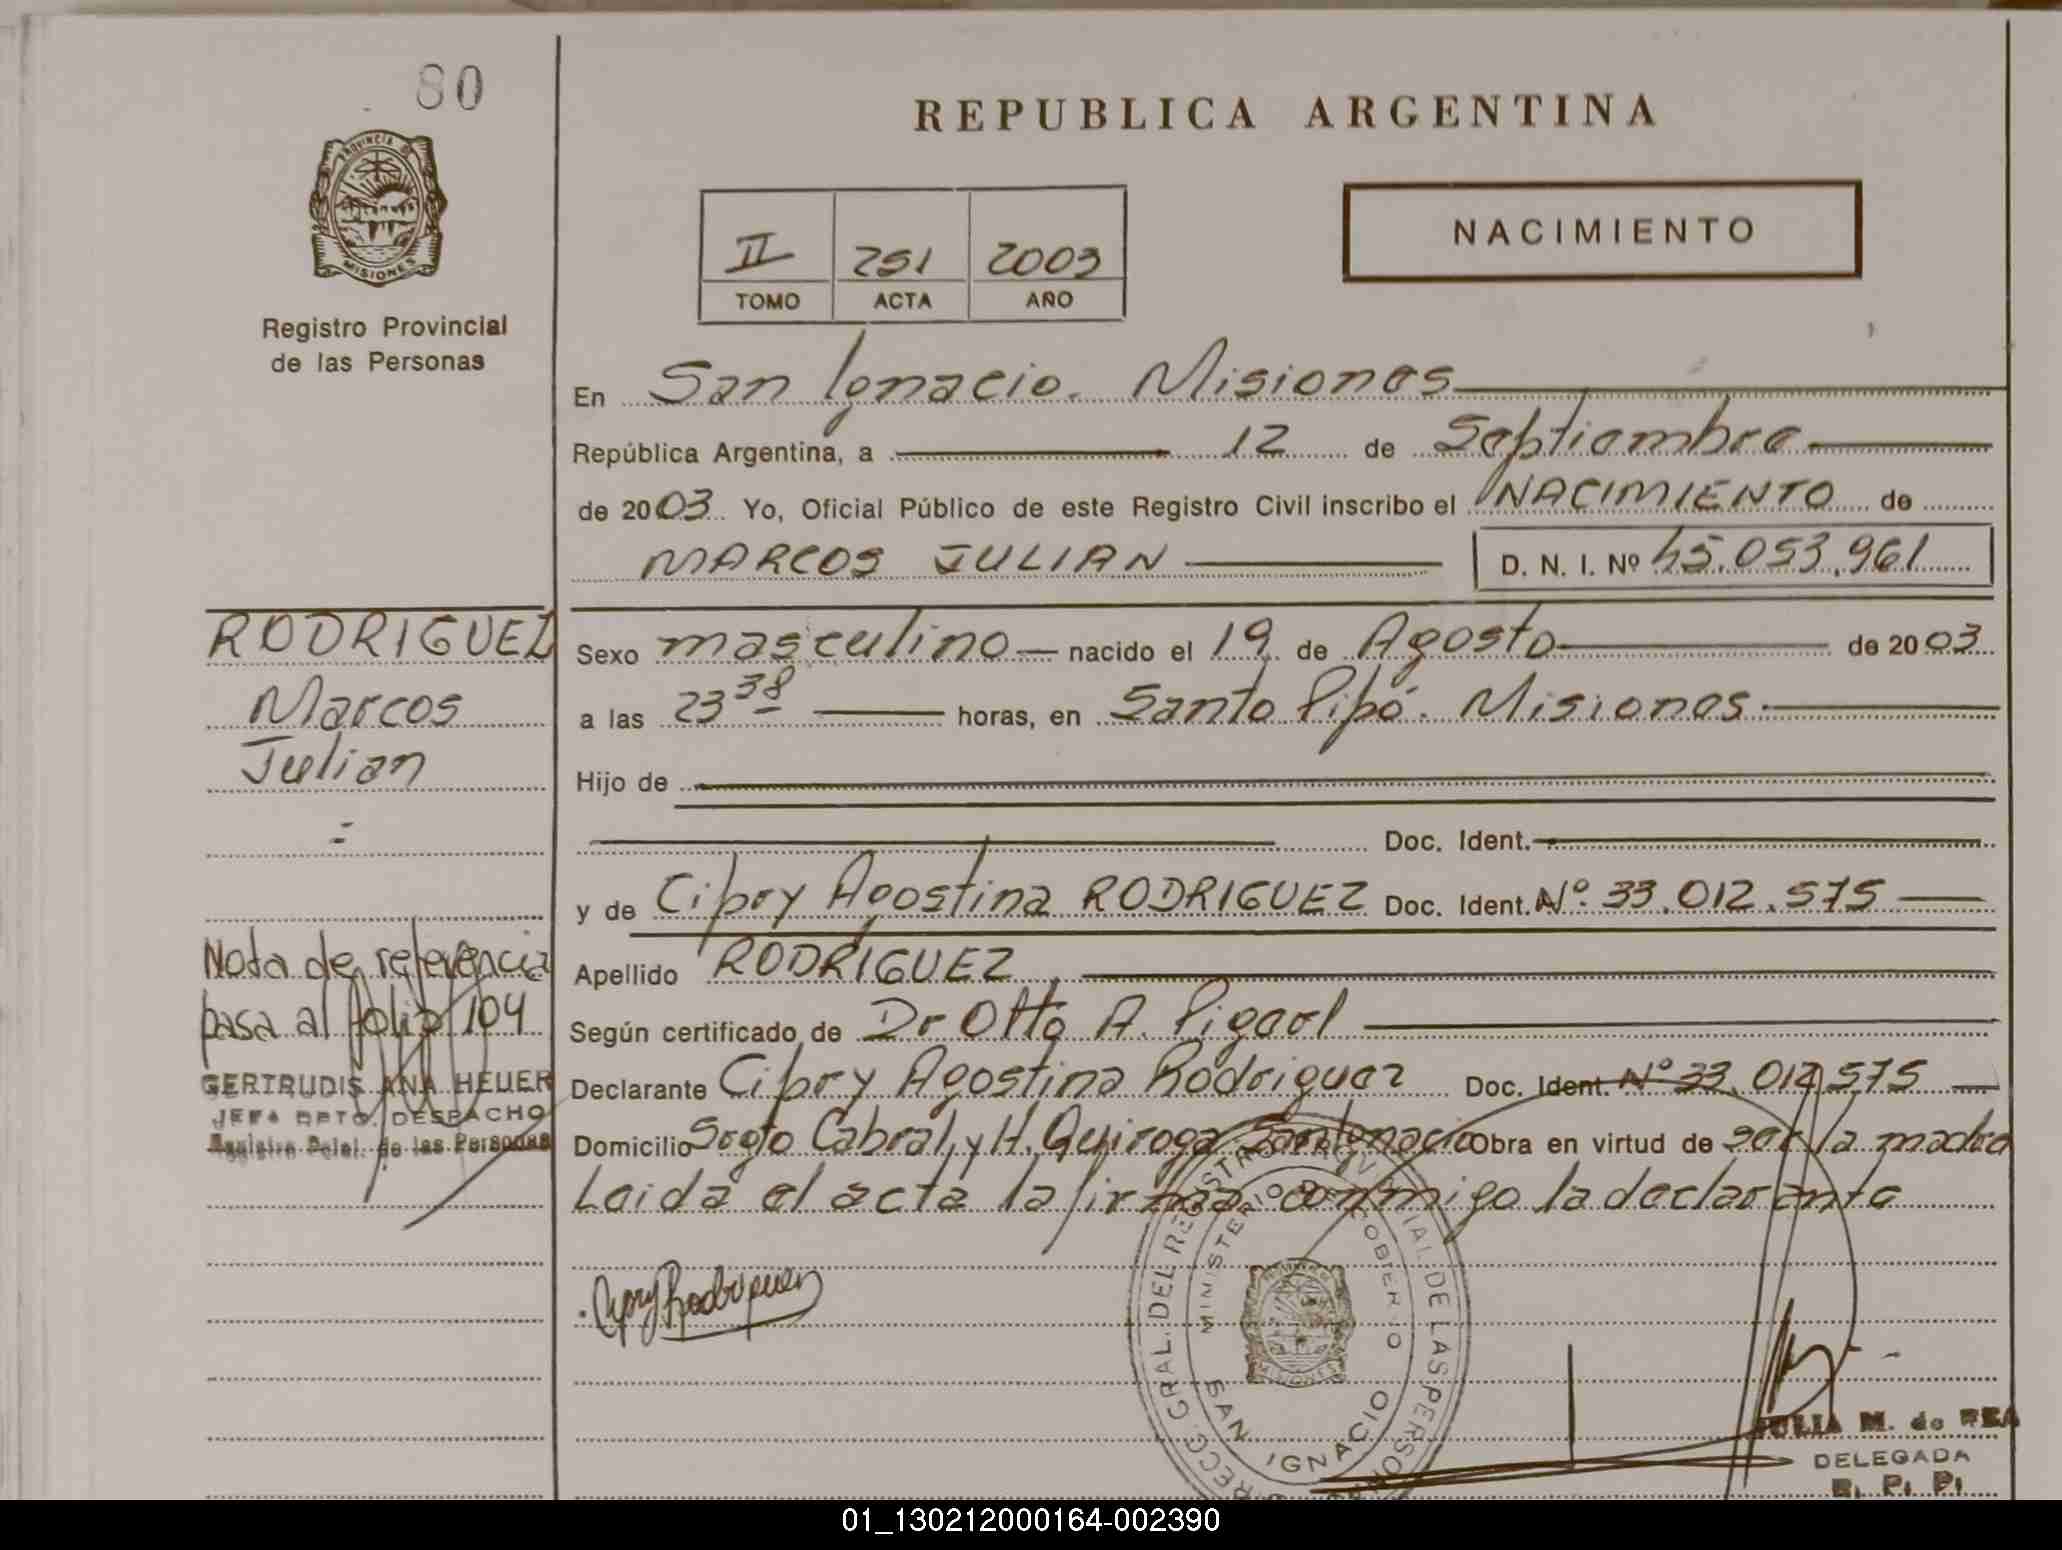 80
REPUBLICA ARGENTINA
PROVINCIA D
MISIONES
Registro Provincial
de las Personas
II 251 2003
TOMO ACTA AÑO
NACIMIENTO
En San Ignacio. Misiones
República Argentina, a 12 de Septiembre
de 2003 Yo, Oficial Público de este Registro Civil inscribo el NACIMIENTO de
MARCOS JULIAN D. N. I. Nº 45.053.961
RODRIGUEZ
Marcos
Julian
Sexo masculino nacido el 19 de Agosto de 2003
a las 23 38 horas, en Santo Pipó. Misiones
Hijo de
Doc. Ident.
y de Cipry Agostina RODRIGUEZ Doc. Ident. Nº 33.012.575
Apellido RODRIGUEZ
Según certificado de Dr Otto A.
Declarante Cipry Agostina Rodriguez Doc. Ident. Nº 33.012.575
Domicilio Sogto Cabral y H. Quiroga San Ignacio Obra en virtud de ser la madre
Leida el acta la firma conmigo la declarante
Nota de referencia
pasa al folio 104
GERTRUDIS ANA HEUER
JEFA DPTO. DESPACHO
Registro Pcial. de las Personas
DIRECC. GRAL. DEL REGISTRO PROVINCIAL DE LAS PERSONAS
MINISTERIO DE GOBIERNO
SAN IGNACIO
MISIONES
JULIA M. de REA
DELEGADA
R. P. P.
01_130212000164-002390